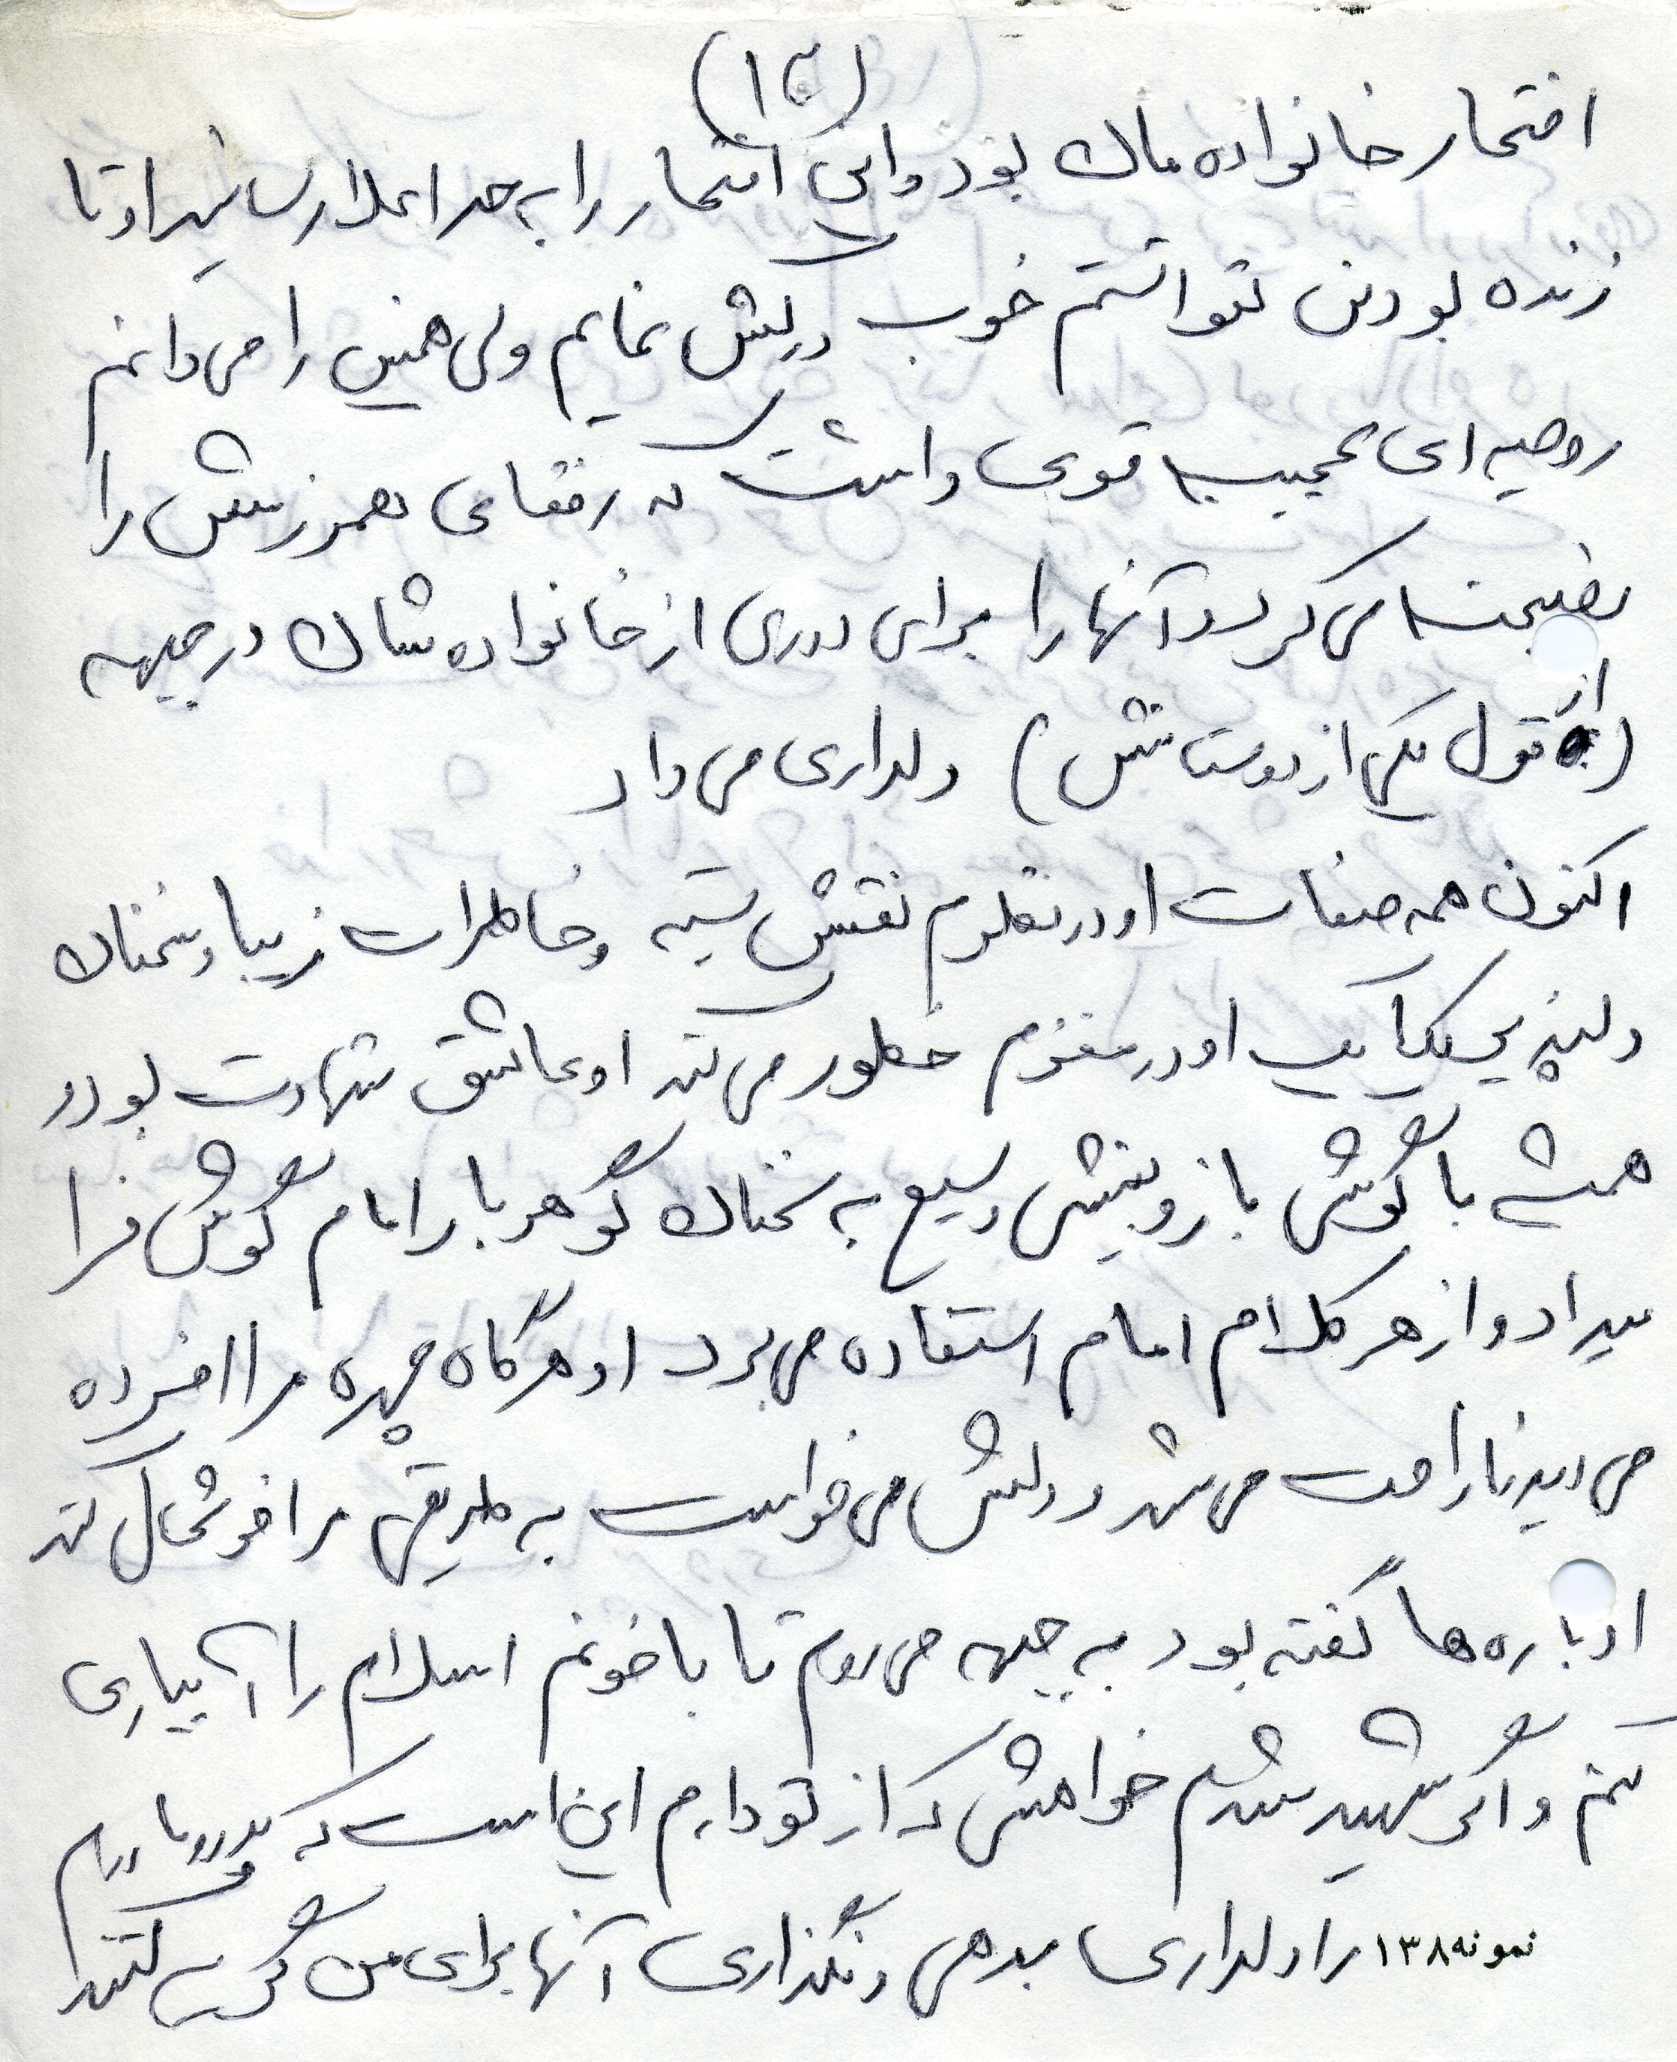 (۱۳)
افتخار خانواده مان بود و این افتخار را به حد اعلا رسانید او تا
زنده بودن نتوانستم خوب درکش نمایم ولی همین را می دانم
روحیه ای عجیب قوی داشت که رفقای همرزمش را
نصیحت می کرد و آنها را برای دوری از خانواده شان در جبهه
(از قول یکی از دوستانش) دلداری می داد
اکنون همه صفات او در نظرم نقش بسته و خاطرات زیبا و سخنان
دلپذیر یکایک او در مغزم خطور می کند او عاشق شهادت بود و
همیشه با گوشی باز و بینشی وسیع به سخنان گوهر بار امام گوش فرا
میداد و از هر کلام امام استفاده می برد او هرگاه چهره مرا افسرده
می دید ناراحت می شد و دلش می خواست به طریقی مرا خوشحال کند
او باره ها گفته بود به جبهه می روم تا با خونم اسلام را آبیاری
کنم و اگر شهید شدم خواهش که از تو دارم این است که پدر و مادرم
را دلداری بدهی و نگذاری آنها برای من گریه کنند
نمونه ۱۳۸